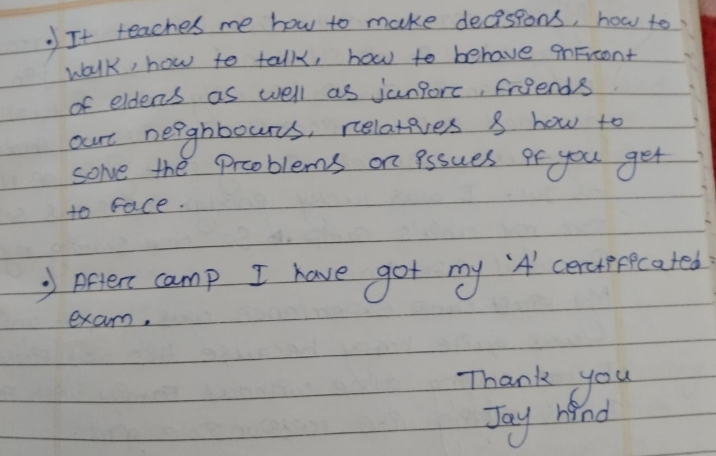 •) It teaches me how to make decisions, how to
walk, how to talk, how to behave infront
of elders as well as junior, friends
our neighbours, relatives & how to
solve the problems or issues if you get
to face.
•) After camp I have got my 'A' certificated
exam.
Thank you
Jay hind